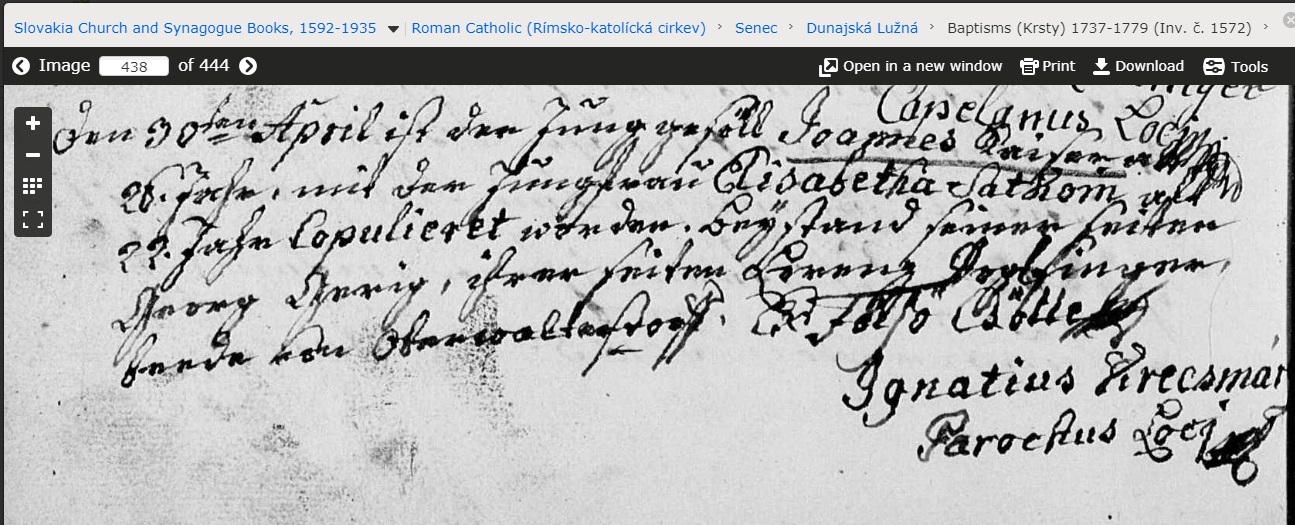 Slovakia Church and Synagogue Books, 1592-1935 Roman Catholic (Rímsko-katolícká cirkev) › Senec › Dunajská Lužná › Baptisms (Krsty) 1737-1779 (Inv. č. 1572) ›
Image 438 of 444 Open in a new window Print Download Tools
Capelanus Loci
Den 30ten April ist der Jung gesöll Joannes Kaiser alt
26. Jahr, mit der Jungfrau Elisabetha alt
22. Jahr Copulieret worden. beÿstand seiner seiten
Georg Gerig, ihrer seiten Lorenz
beede von Oberwaltersdorff. Ex Felsö Csölle
Ignatius Krecsmár
Parochus Loci